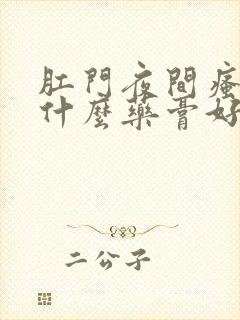 肛門夜間瘙
什麼藥膏好
二公子